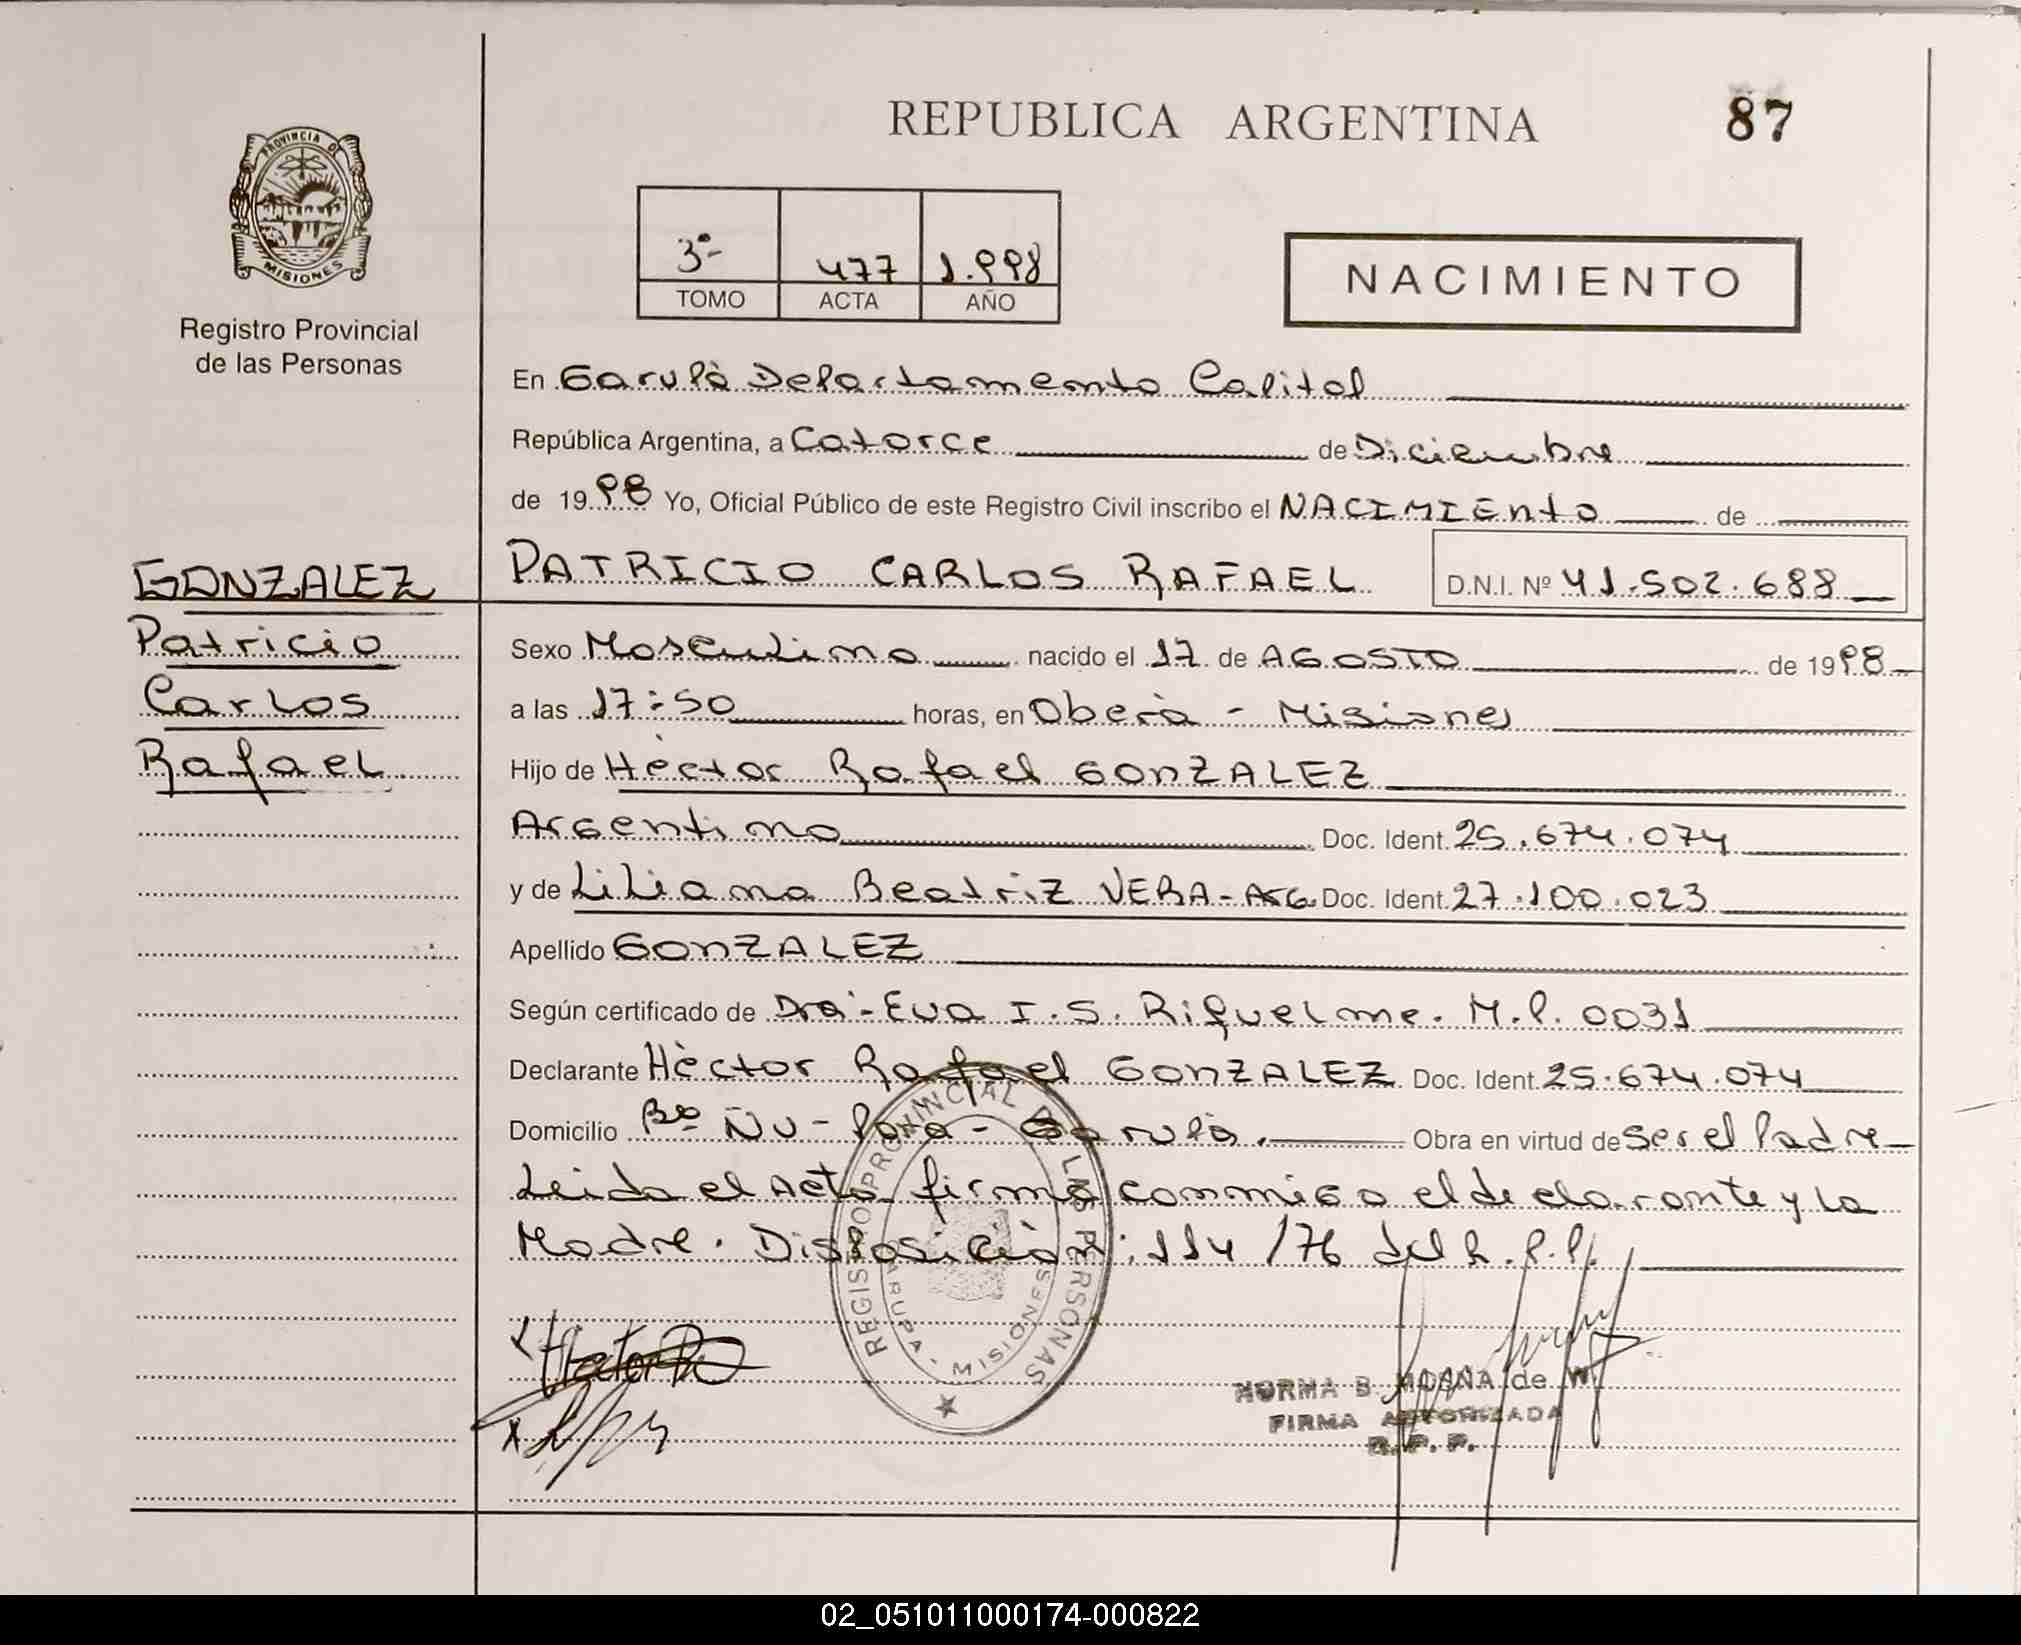 REPUBLICA ARGENTINA
87
PROVINCIA DE
MISIONES
Registro Provincial
de las Personas
3º-
477
1.998
TOMO
ACTA
AÑO
NACIMIENTO
En Garupà Departamento Capital
República Argentina, a Catorce de Diciembre
de 1998 Yo, Oficial Público de este Registro Civil inscribo el NACIMIENTO de
GONZALEZ
Patricio
Carlos
Rafael
PATRICIO CARLOS RAFAEL D.N.I. Nº 41.502.688
Sexo Masculino nacido el 17 de AGOSTO de 1998
a las 17:50 horas, en Oberà - Misiones
Hijo de Hèctor Rafael GONZALEZ
Argentino Doc. Ident. 25.674.074
y de Liliana Beatriz VERA-ARG. Doc. Ident. 27.100.023
Apellido GONZALEZ
Según certificado de Dra- Eva I. S. Riquelme. M.P. 0031
Declarante Hèctor Rafael GONZALEZ Doc. Ident. 25.674.074
Domicilio Bº Ñu-Porà- Garupà. Obra en virtud de ser el Padre
Leida el Acta firma conmigo el declarante y la
Madre. Disposiciòn: 114/76 del R.P.P.
REGISTRO PROVINCIAL DE LAS PERSONAS
GARUPA - MISIONES
Hector
NORMA B. de
FIRMA AUTORIZADA
R.P.P.
02_051011000174-000822